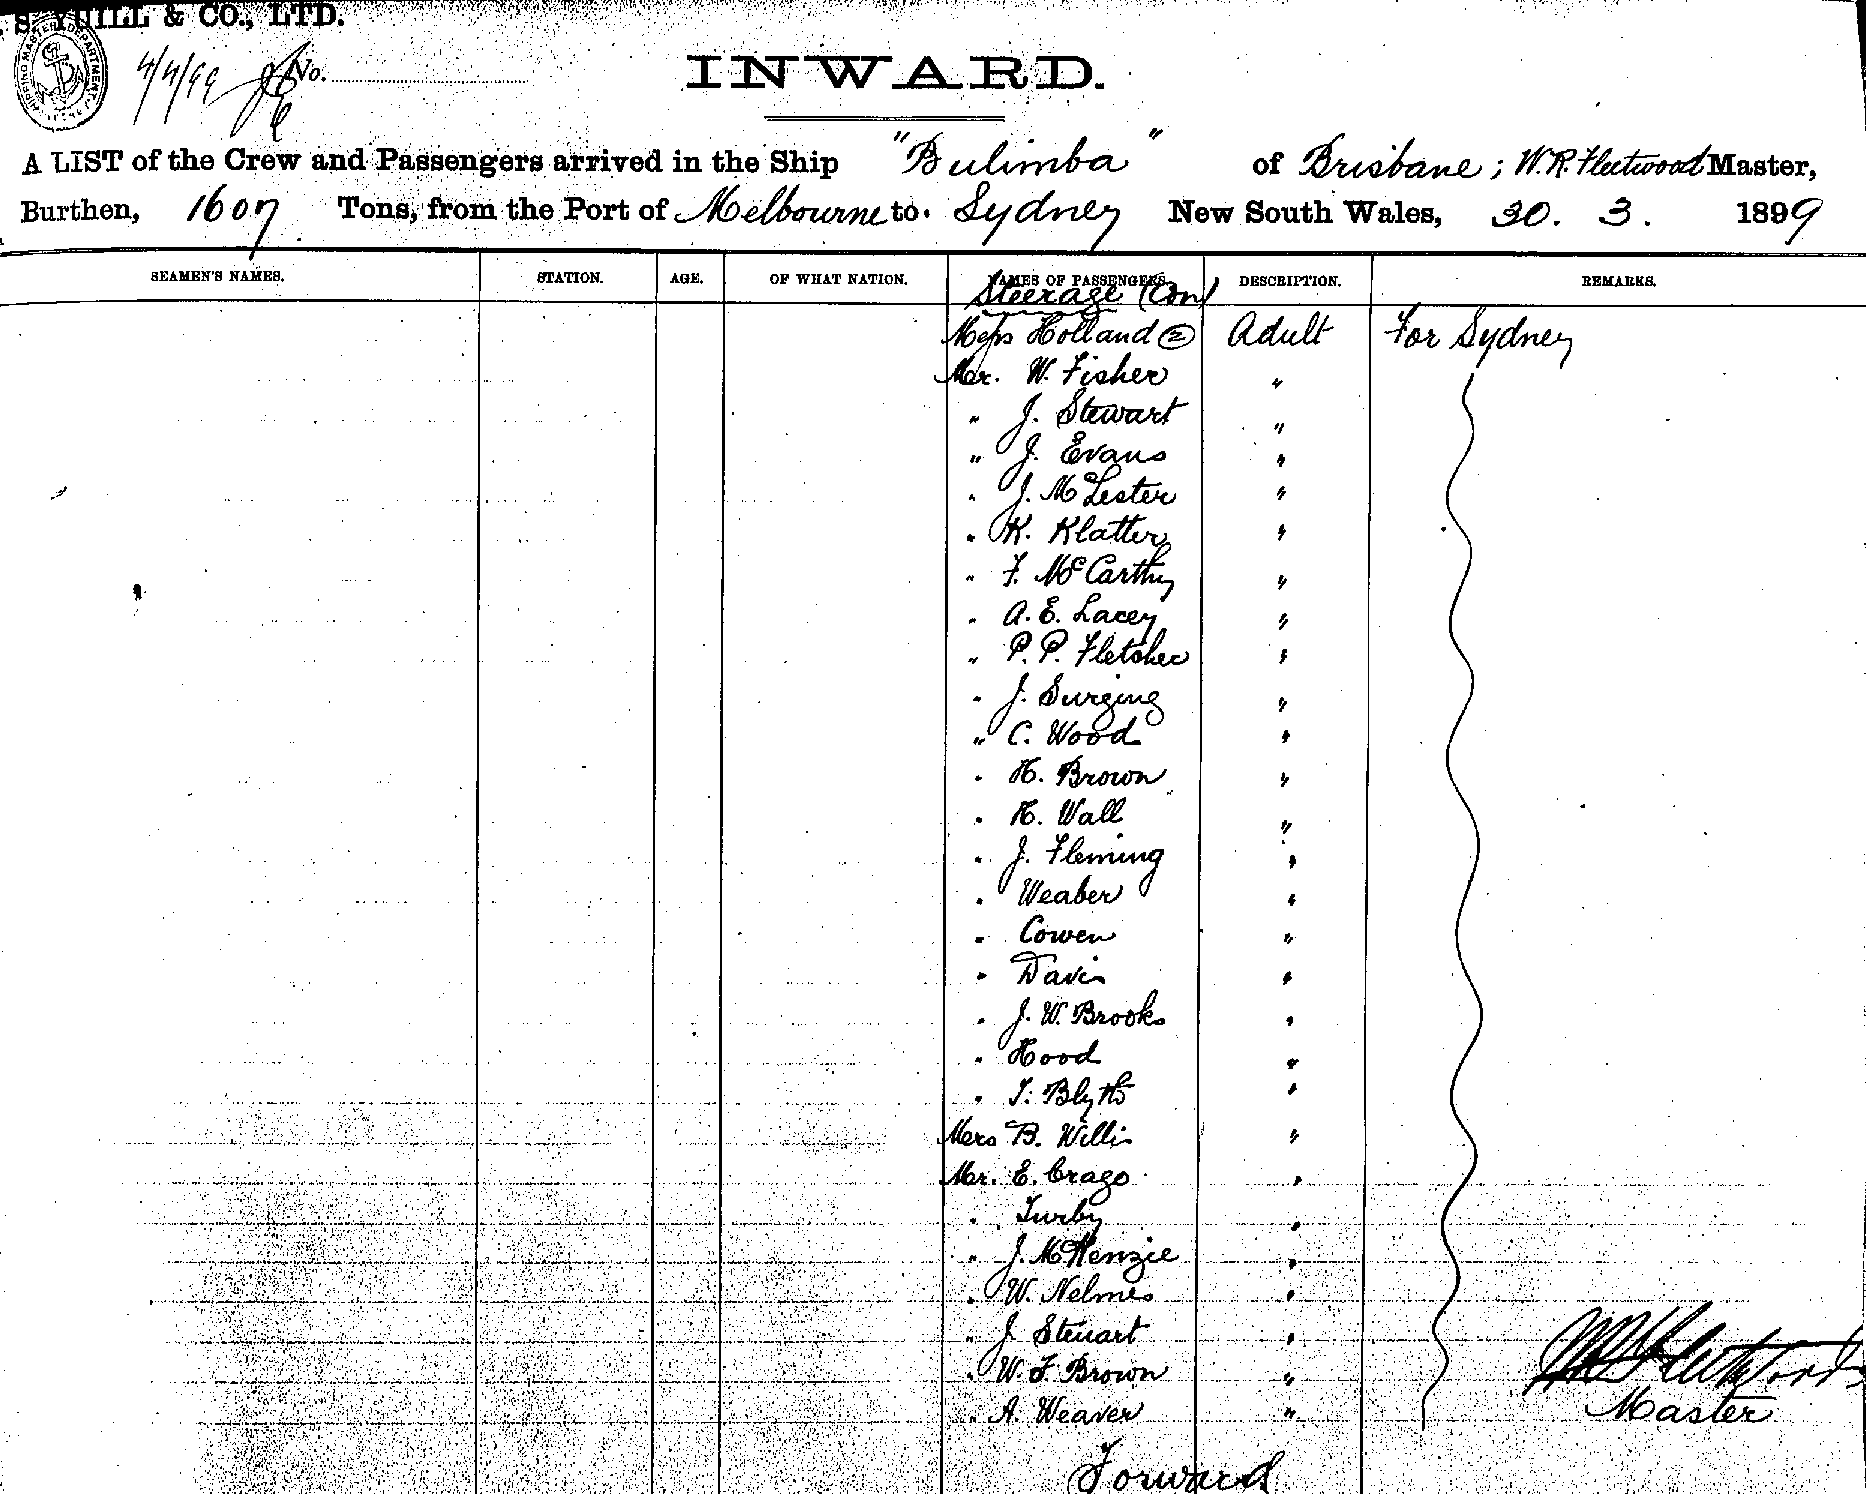 S. YUILL & CO., LTD.
4/4/99 No.
INWARD.
A LIST of the Crew and Passengers arrived in the Ship "Bulimba" of Brisbane; W.R. Fleetwood Master,
Burthen, 1607 Tons, from the Port of Melbourne to Sydney New South Wales, 30. 3. 1899
SEAMEN'S NAMES. STATION. AGE. OF WHAT NATION. NAMES OF PASSENGERS. DESCRIPTION. REMARKS.
Steerage (Con)
Messrs Holland (2) Adult For Sydney
Mr. W. Fisher "
" J. Stewart "
" J. Evans "
" J. McLester "
" K. Klatter "
" F. McCarthy "
" A. E. Lacey "
" P. P. Fletcher "
" J. Surging "
" C. Wood "
" H. Brown "
" H. Wall "
" J. Fleming "
" Weaber "
" Cowen "
" Davis "
" J. W. Brooks "
" Hood "
" T. Blyth "
Mrs B. Willis "
Mr. E. Crago "
" Turby "
" J. McKenzie "
" W. Nelmes "
" J. Stewart "
" W. F. Brown "
" A. Weaver "
W R Fleetwood
Master
Forward